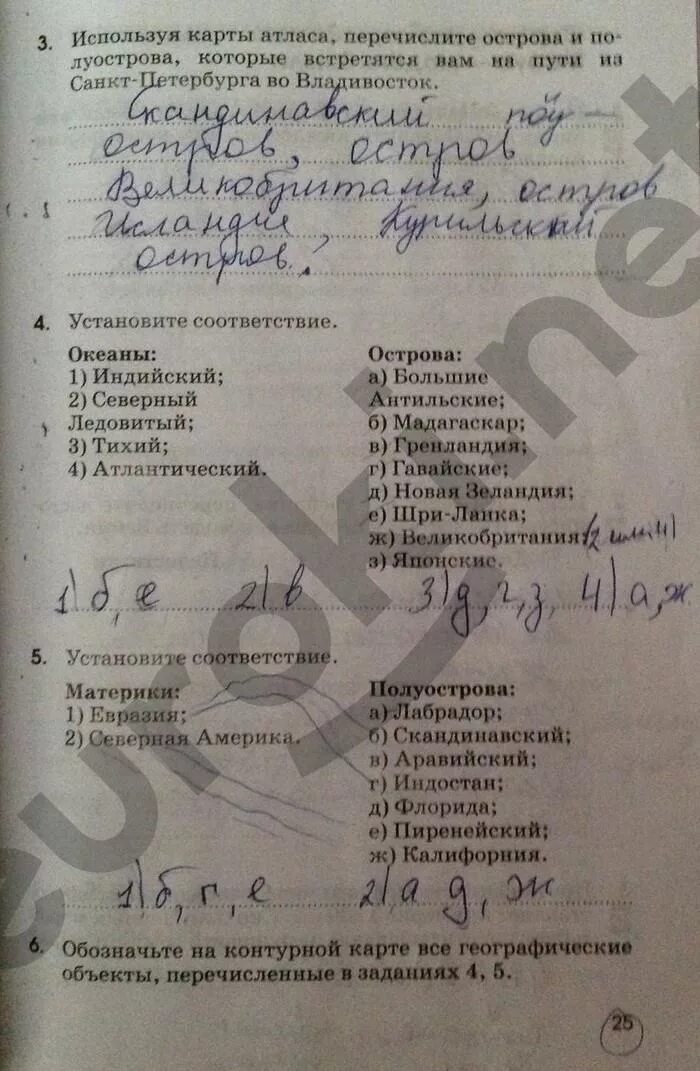 3. Используя карты атласа, перечислите острова и по-
луострова, которые встретятся вам на пути из
Санкт-Петербурга во Владивосток.
Скандинавский полу-
остров, остров
Великобритания, остров
Исландие, Курильский
остров.
4. Установите соответствие.
Океаны:
1) Индийский;
2) Северный
Ледовитый;
3) Тихий;
4) Атлантический.
Острова:
а) Большие
Антильские;
б) Мадагаскар;
в) Гренландия;
г) Гавайские;
д) Новая Зеландия;
е) Шри-Ланка;
ж) Великобритания; (2 или 4)
з) Японские.
1) б, е 2) в 3) д, г, з, 4) а, ж
5. Установите соответствие.
Материки:
1) Евразия;
2) Северная Америка.
Полуострова:
а) Лабрадор;
б) Скандинавский;
в) Аравийский;
г) Индостан;
д) Флорида;
е) Пиренейский;
ж) Калифорния.
1) б, г, е 2) а д, ж
6. Обозначьте на контурной карте все географические
объекты, перечисленные в заданиях 4, 5.
25
eurokin.net